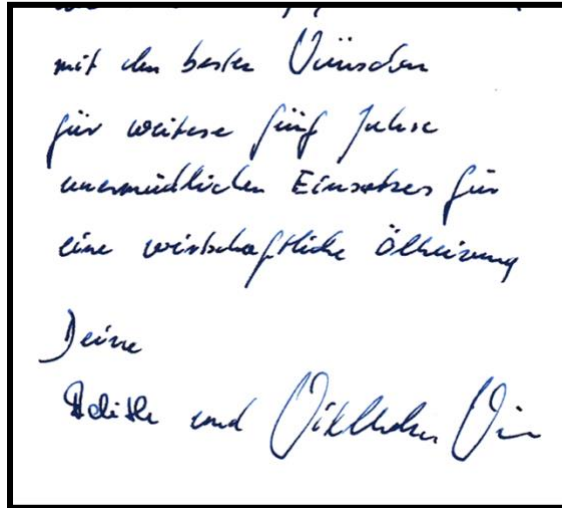 mit den besten Wünschen
für weitere fünf Jahre
unermüdlichen Einsatzes für
eine wirtschaftliche Ölheizung
Deine
und